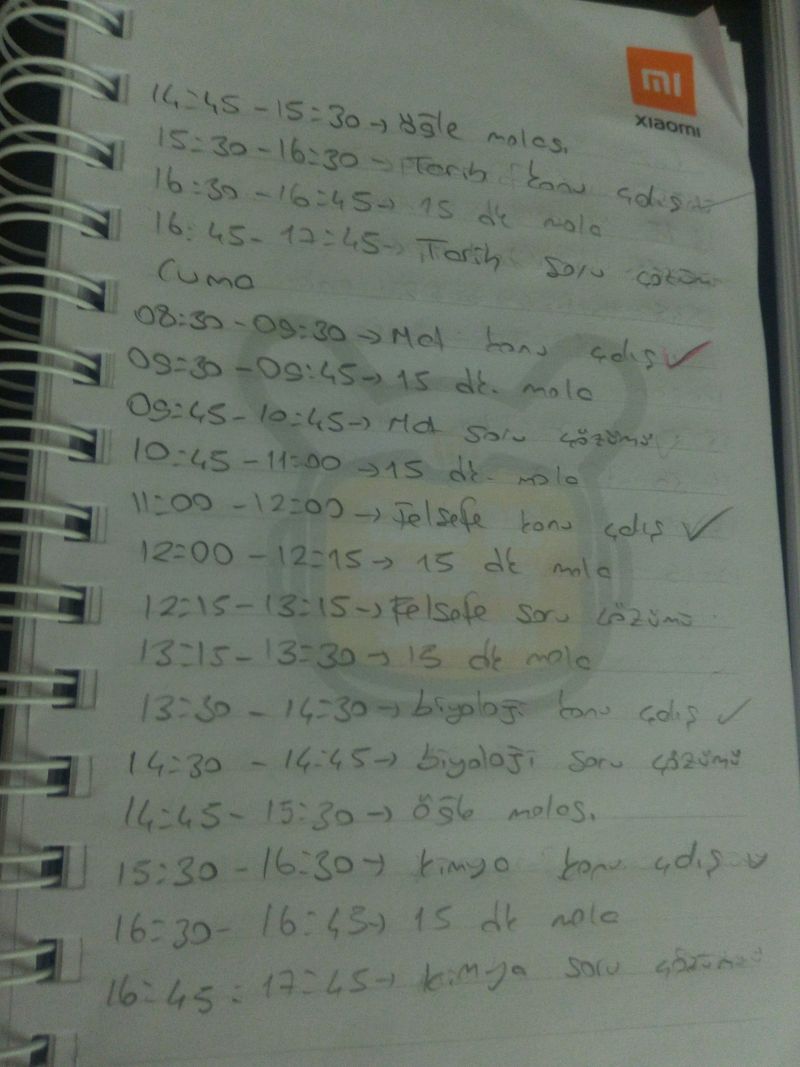 mi
xiaomi
14:45-15:30→ öğle molası
15:30-16:30→ Tarih konu çalış
16:30-16:45→ 15 dk mola
16:45-17:45→ Tarih soru çözümü
Cuma
08:30-09:30→ Mat konu çalış ✓
09:30-09:45→ 15 dk. mola
09:45-10:45→ Mat soru çözümü
10:45-11:00→ 15 dk. mola
11:00-12:00→ Felsefe konu çalış ✓
12:00-12:15→ 15 dk mola
12:15-13:15→ Felsefe soru çözümü
13:15-13:30→ 15 dk mola
13:30-14:30→ biyoloji konu çalış ✓
14:30-14:45→ biyoloji soru çözümü
14:45-15:30→ öğle molası
15:30-16:30→ kimya konu çalış ✓
16:30-16:45→ 15 dk mola
16:45:17:45→ kimya soru çözümü